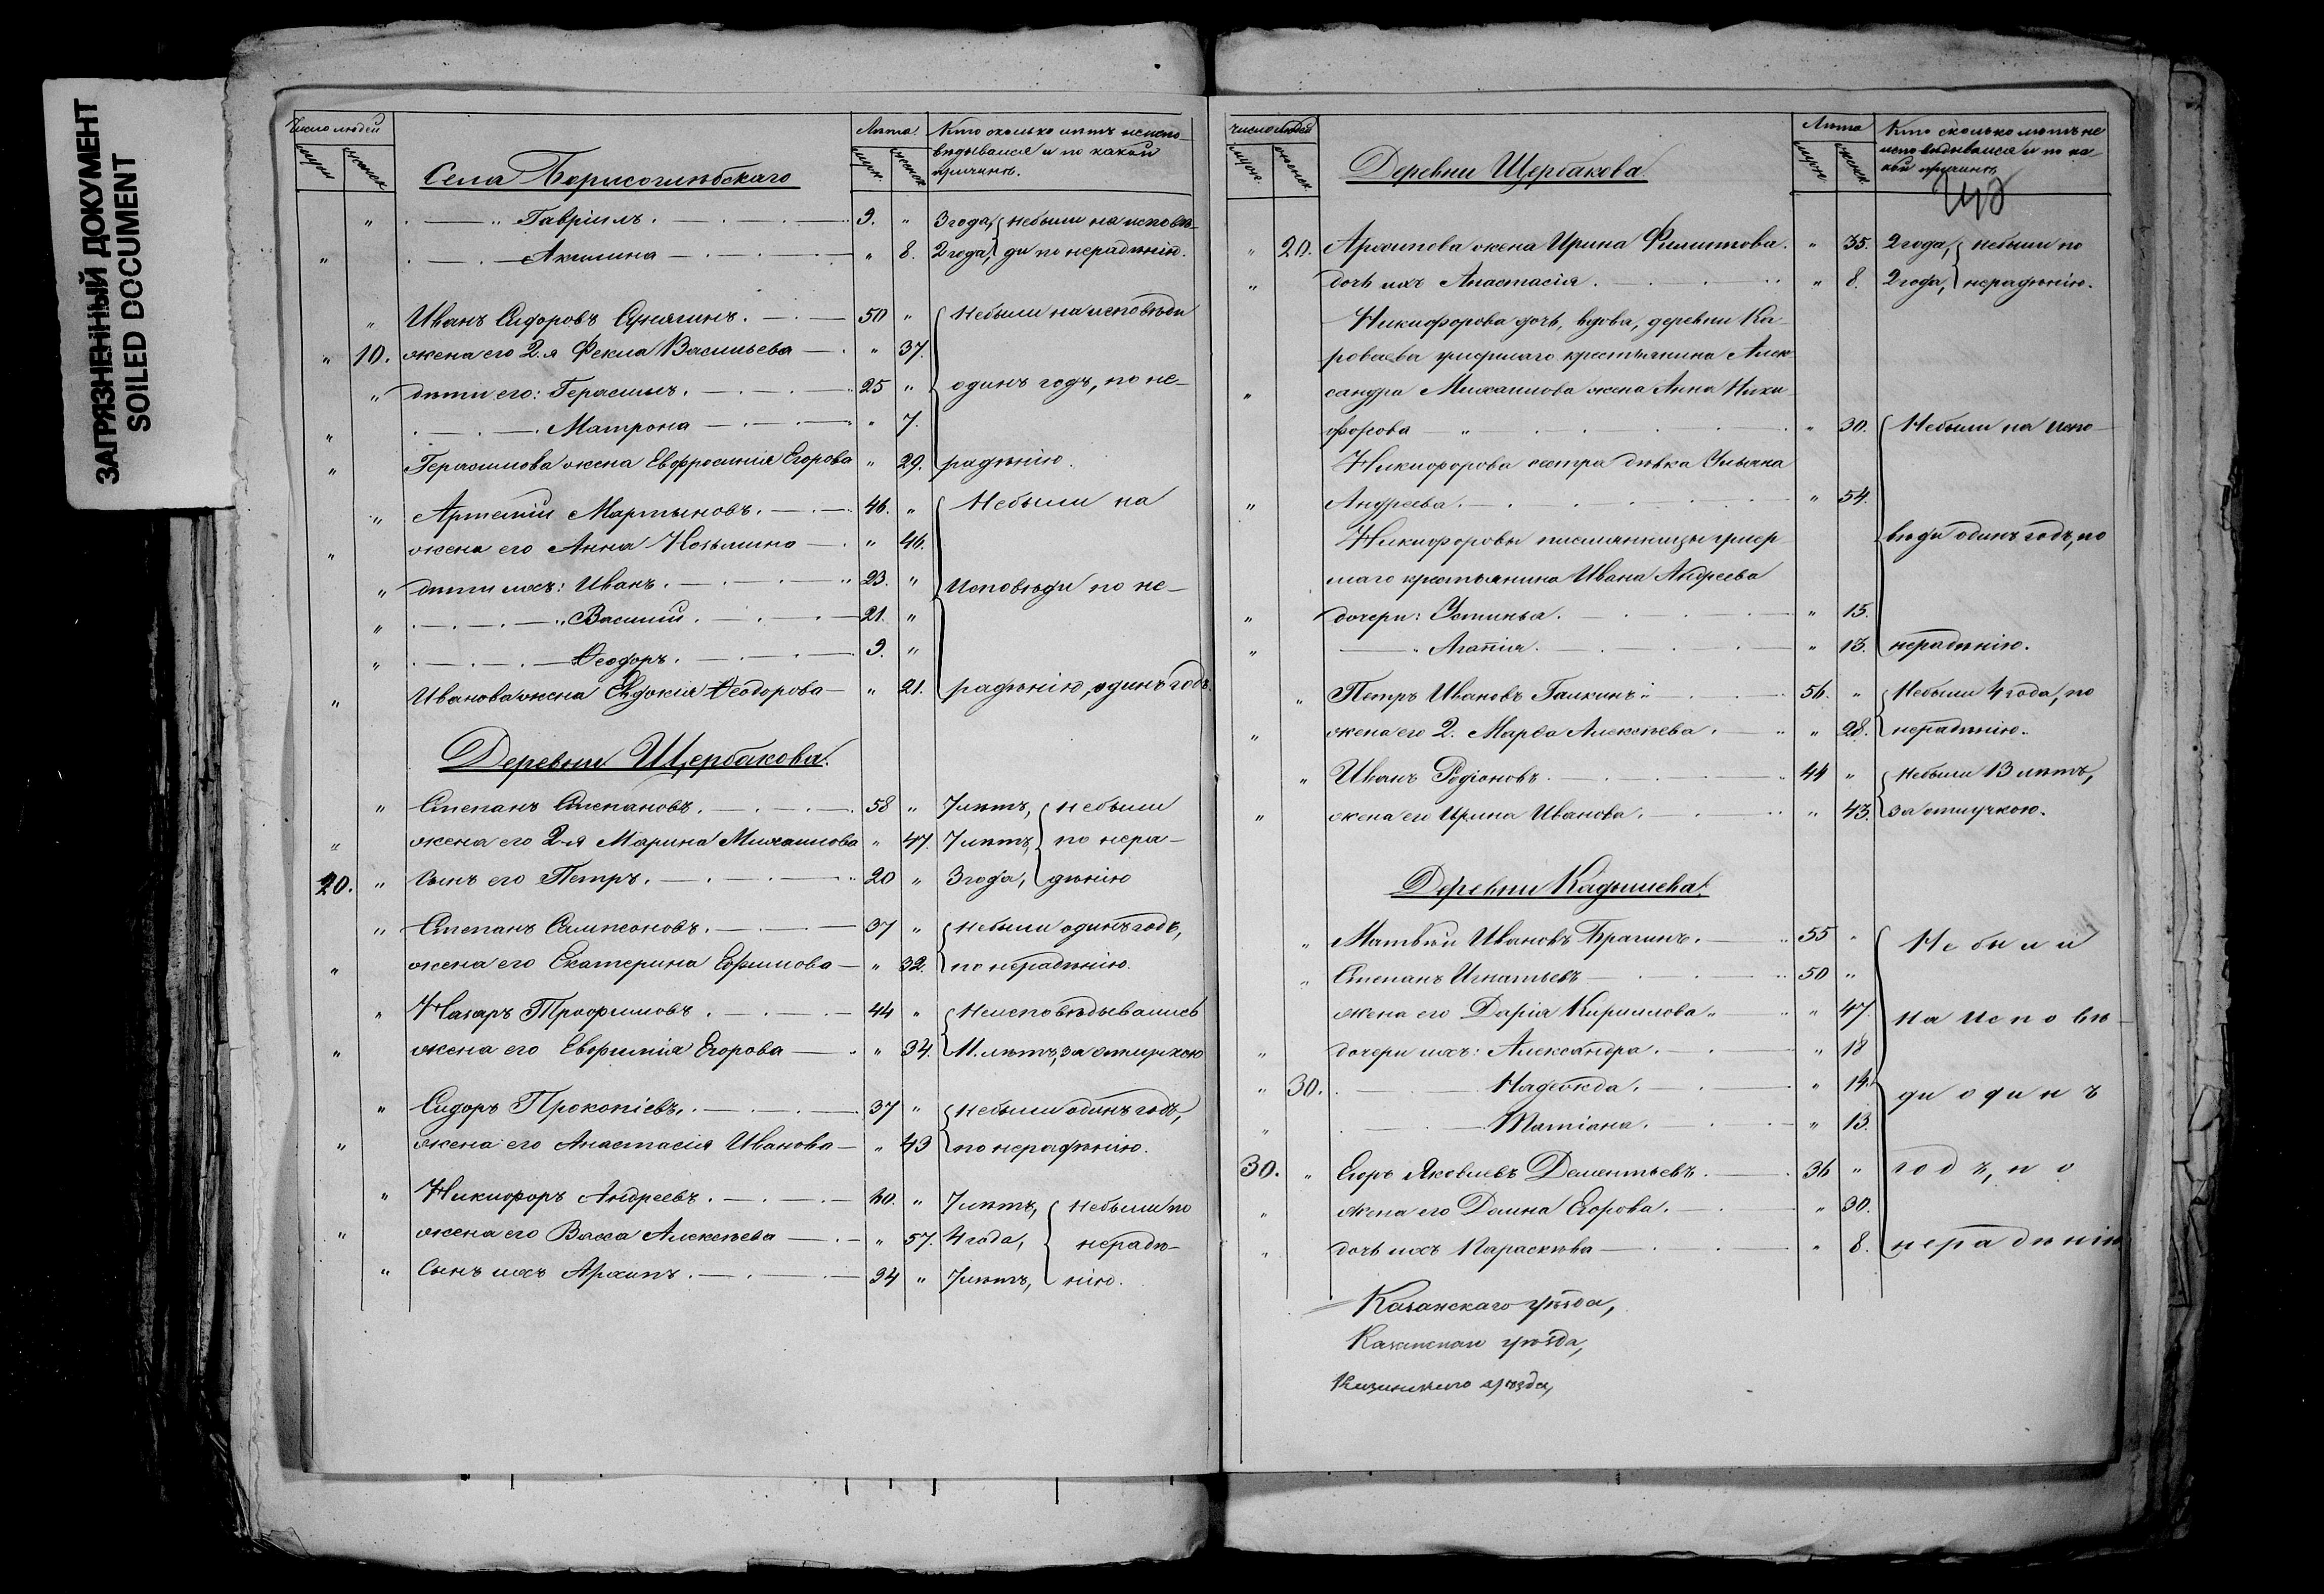 ЗАГРЯЗНЕННЫЙ ДОКУМЕНТ
SOILED DOCUMENT
Число людей
мужск. женск.
Села Борисоглѣбскаго
Лѣта.
мужск. женск.
Кто сколько лѣтъ неиспо-
вѣдывался и по какой
причинѣ.
" Гавріилъ. 9. " 3 года, небыли на исповѣ-
" Акилина " 8. 2 года, ди по нерадѣнію.
" Иванъ Сидоровъ 50 " Небыли на исповѣди
" 10. жена его 2-я Фекла Васильева " 37.
" дѣти его: Герасимъ. 25 " одинъ годъ, по не-
" Матрона " 7.
" Герасимова жена Евфросинія Егорова " 29. радѣнію.
" Артемій Мартыновъ. 46. " Небыли на
" жена его Анна Козьмина " 46.
" дѣти ихъ: Иванъ. 23. " Исповѣди по не-
" Василій. 21. "
" Ѳеодоръ. 9. "
" Иванова жена Евдокія Ѳеодорова " 21. радѣнію, одинъ годъ.
Деревни Щербакова.
" Степанъ Степановъ. 58 " 7 лѣтъ, небыли
" жена его 2-я Марина Михаилова " 47. 7 лѣтъ, по нера-
20. " Сынъ его Петръ. 20 " 3 года, дѣнію
" Степанъ Сампсоновъ. 37 " Небыли одинъ годъ,
" жена его Екатерина Ефимова " 32. по нерадѣнію.
" Назаръ Трофимовъ. 44 " Неисповѣдывались
" жена его Евфимія Егорова " 34. 11. лѣтъ, за отлучкою
" Сидоръ Прокопіевъ. 37 " Небыли одинъ годъ,
" жена его Анастасія Иванова " 43 по нерадѣнію.
" Никифоръ Андреевъ. 60. " 7 лѣтъ, Небыли по
" жена его Васса Алексѣева " 57. 4 года, нерадѣ-
" Сынъ ихъ Архипъ. 34 " 7 лѣтъ, нію.
число людей
мужск. женск.
Деревни Щербакова
Лѣта
мужск. женск.
Кто сколько лѣтъ не
исповѣдывался и по ка-
кой причинѣ
" 20. Архипова жена Ирина Филиппова. " 35. 2 года, небыли по
" дочь ихъ Анастасія. " 8. 2 года, нерадѣнію.
Никифорова дочь, вдова, деревни Ка-
роваева умершаго крестьянина Алек-
" сандра Михаилова жена Анна Ники-
форова " 30. Небыли на испо-
Никифорова сестра дѣвка Ульяна
" Андреева. " 54.
Никифоровы племянницы умер- вѣди одинъ годъ, по
шаго крестьянина Ивана Андреева
" дочери: Устинья. " 15.
" Агапія. " 13. нерадѣнію.
" Петръ Ивановъ Галкинъ 56. " Небыли 4 года, по
" жена его 2. Марѳа Алексѣева. " 28. нерадѣнію.
" Иванъ Родіоновъ. 44 " Небыли 13 лѣтъ,
" жена его Ирина Иванова. " 43. за отлучкою.
Деревни Кадышева.
" Матвѣй Ивановъ Брагинъ. 55 " Небыли
" Степанъ Игнатьевъ 50 "
жена его Дарія Кириллова " 47. на исповѣ-
" дочери ихъ: Александра. " 18
" 30. Надежда. " 14. ди одинъ
" Татіана. " 13.
30. " Егоръ Яковлевъ Дементьевъ. 36 " годъ, по
" жена его Домна Егорова. " 30.
" дочь ихъ Параскева " 8. нерадѣнію
Казанскаго уѣзда,
Казанскаго уѣзда,
Казанскаго уѣзда,